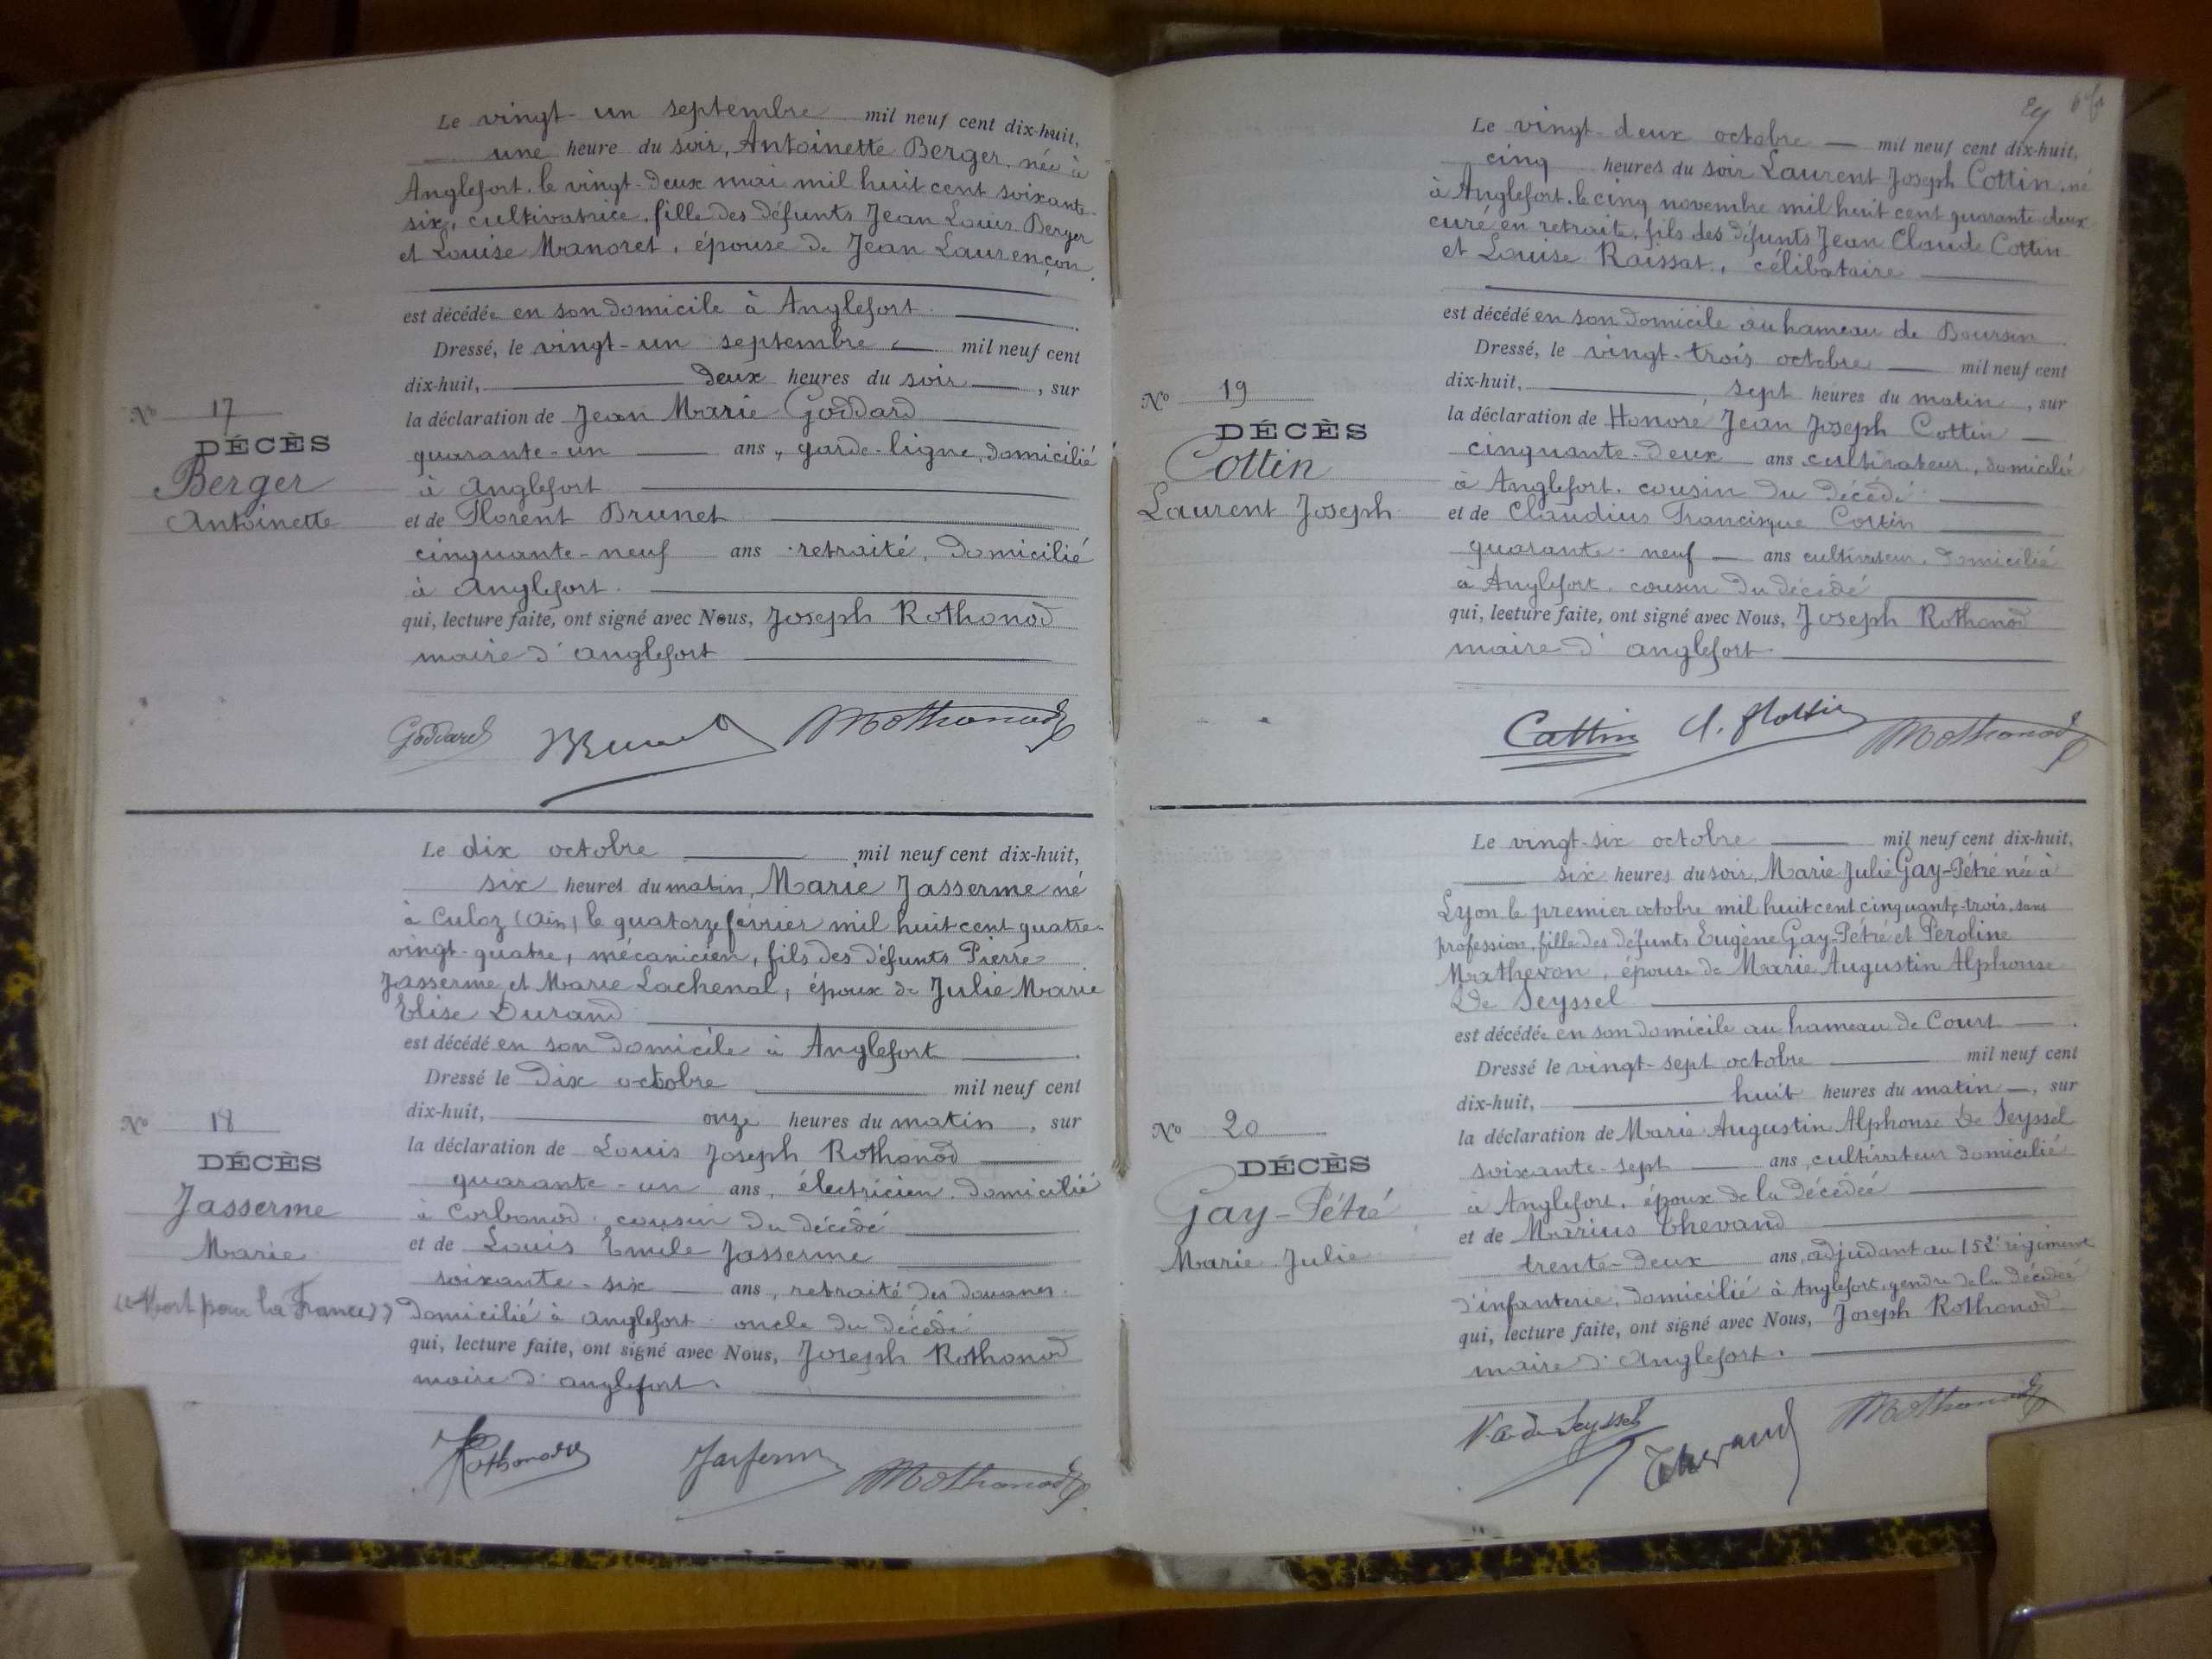 Le vingt-un septembre mil neuf cent dix-huit,
une heure du soir, Antoinette Berger, née à
Anglefort, le vingt-deux mai mil huit cent soixante-
six, cultivatrice, fille des défunts Jean Louis Berger
et Louise Manoret, épouse de Jean Laurençon.
est décédée en son domicile à Anglefort
Dressé, le vingt-un septembre mil neuf cent
dix-huit, deux heures du soir, sur
la déclaration de Jean Marie Goddard
quarante-un ans, garde-ligne, domicilié
à Anglefort
et de Florent Brunet
cinquante-neuf ans retraité, domicilié
à Anglefort.
qui, lecture faite, ont signé avec Nous, Joseph Rothonod
maire d'Anglefort
No 17
DÉCÈS
Berger
Antoinette
Goddard Brunet Rothonod
Le dix octobre mil neuf cent dix-huit,
six heures du matin, Marie Jasserme né
à Culoz (Ain) le quatorze février mil huit cent quatre-
vingt-quatre, mécanicien, fils des défunts Pierre
Jasserme et Marie Lachenal, époux de Julie Marie
Elise Durand
est décédé en son domicile à Anglefort
Dressé le dix octobre mil neuf cent
dix-huit, onze heures du matin, sur
la déclaration de Louis Joseph Rothonod
quarante-un ans, électricien, domicilié
à Corbonod, cousin du décédé
et de Louis Emile Jasserme
soixante-six ans, retraité des douanes
domicilié à Anglefort oncle du décédé
qui, lecture faite, ont signé avec Nous, Joseph Rothonod
maire d'Anglefort.
No 18
DÉCÈS
Jasserme
Marie
«Mort pour la France»
Rothonod Jasserme Rothonod
24
Le vingt-deux octobre mil neuf cent dix-huit,
cinq heures du soir Laurent Joseph Cottin, né
à Anglefort, le cinq novembre mil huit cent quarante-deux
curé en retraite, fils des défunts Jean Claude Cottin
et Louise Raissat, célibataire
est décédé en son domicile au hameau de Boursin
Dressé, le vingt-trois octobre mil neuf cent
dix-huit, sept heures du matin, sur
la déclaration de Honoré Jean Joseph Cottin
cinquante-deux ans cultivateur, domicilié
à Anglefort, cousin du décédé
et de Claudius Francisque Cottin
quarante-neuf ans cultivateur, domicilié
à Anglefort, cousin du décédé
qui, lecture faite, ont signé avec Nous, Joseph Rothonod
maire d'Anglefort.
No 19
DÉCÈS
Cottin
Laurent Joseph
Cottin Rothonod
Le vingt-six octobre mil neuf cent dix-huit,
six heures du soir, Marie Julie Gay-Pétré née à
Lyon le premier octobre mil huit cent cinquante-trois, sans
profession, fille des défunts Eugène Gay-Pétré et Péroline
Mathevon, épouse de Marie Augustin Alphonse
De Seyssel
est décédée en son domicile au hameau de Court
Dressé le vingt-sept octobre mil neuf cent
dix-huit, huit heures du matin, sur
la déclaration de Marie Augustin Alphonse De Seyssel
soixante-sept ans, cultivateur domicilié
à Anglefort, époux de la décédée
et de Marius Thevand
trente-deux ans, adjudant au 152e régiment
d'infanterie, domicilié à Anglefort, gendre de la décédée
qui, lecture faite, ont signé avec Nous, Joseph Rothonod
maire d'Anglefort.
No 20
DÉCÈS
Gay-Pétré
Marie Julie
de Seyssel Thevand Rothonod